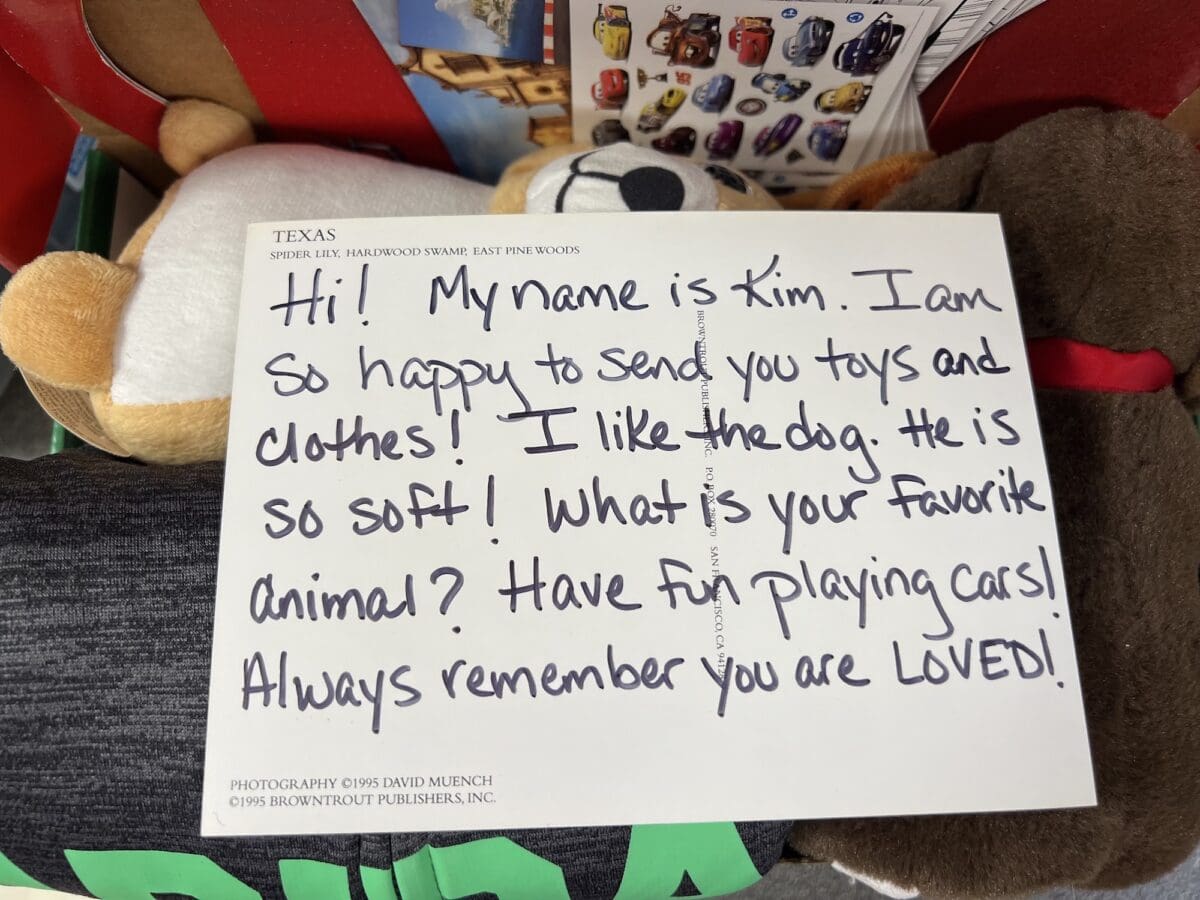 TEXAS
SPIDER LILY, HARDWOOD SWAMP, EAST PINE WOODS
Hi! My name is Kim. I am
so happy to send you toys and
clothes! I like the dog. He is
so soft! What is your favorite
animal? Have fun playing cars!
Always remember you are LOVED!
BROWNTROUT PUBLISHERS, INC. P.O. BOX SAN FRANCISCO, CA
PHOTOGRAPHY ©1995 DAVID MUENCH
©1995 BROWNTROUT PUBLISHERS, INC.
95